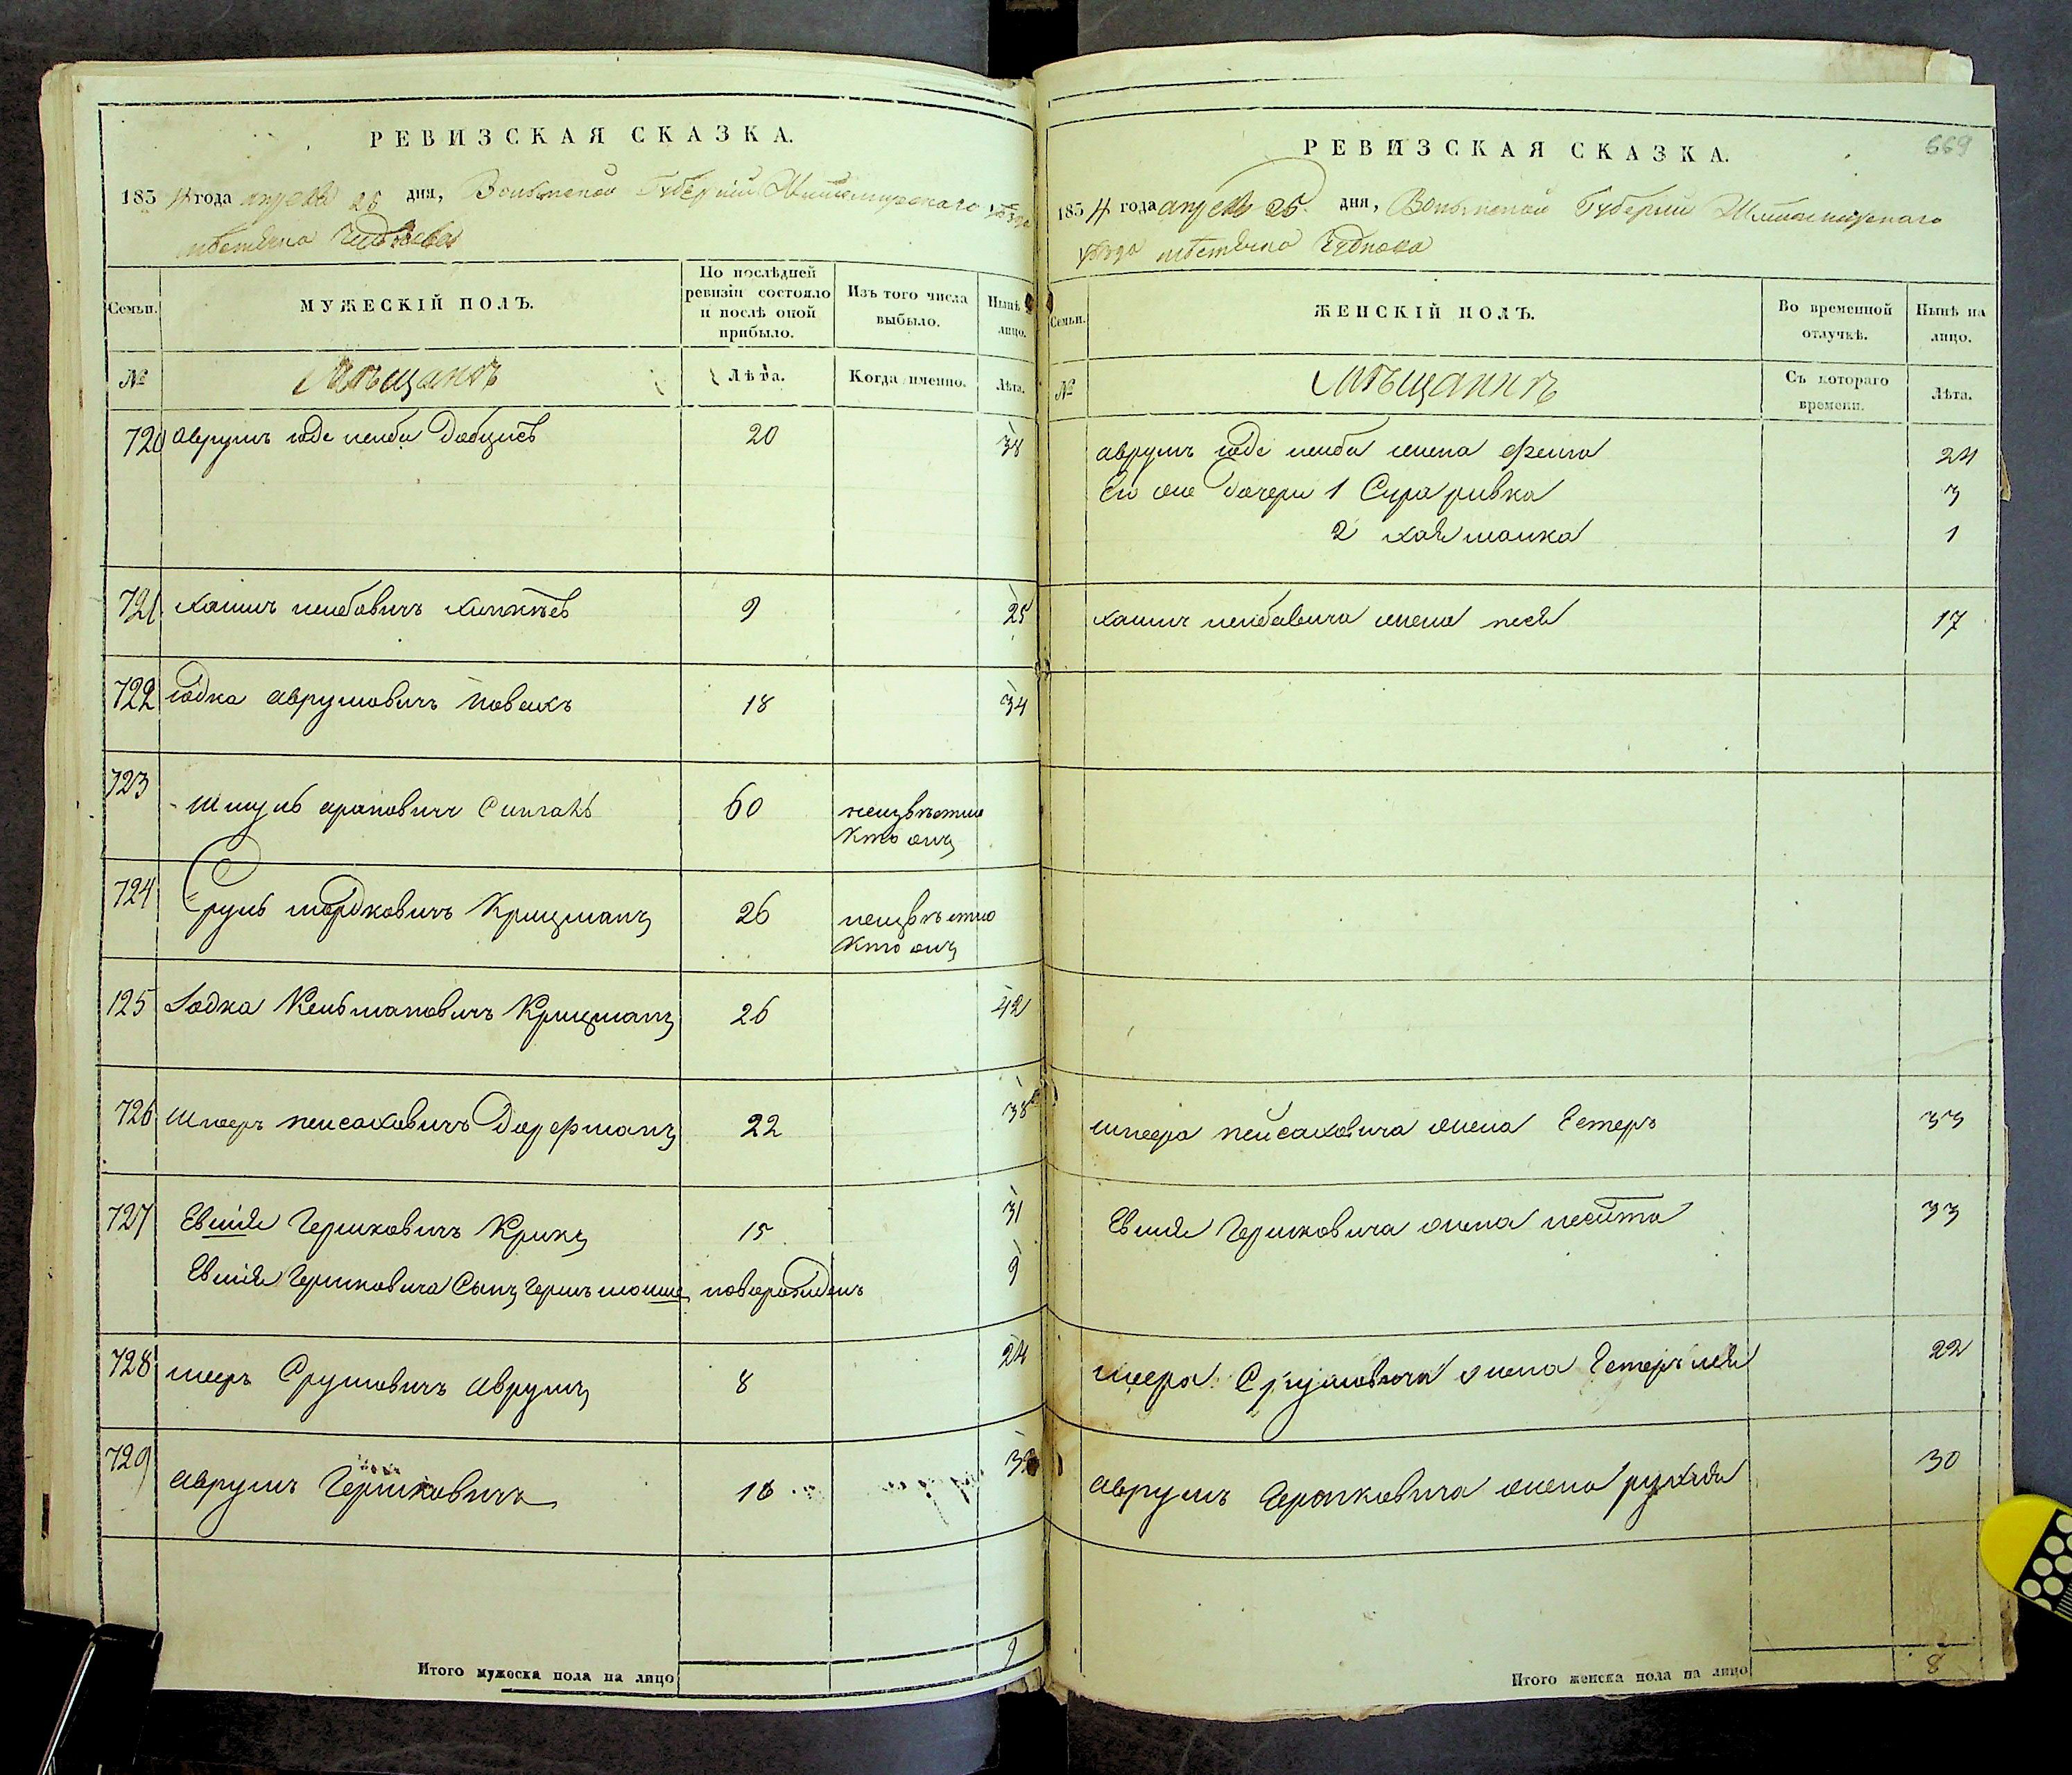 РЕВИЗСКАЯ СКАЗКА.
1854 года апреля 25 дня, Волынской Губерніи Житомирскаго уѣзда
мѣстечка Чуднова
Семьи.
МУЖЕСКІЙ ПОЛЪ.
По послѣдней ревизіи состояло и послѣ оной прибыло.
Изъ того числа выбыло.
Нынѣ на лицо.
№
Мѣщанъ
Лѣта.
Когда именно.
Лѣта.
720 Аврумъ Юде Лейба 20 38
721 Хаимъ Лейбовичъ 9 25
722 Іодка Аврумовичъ Новакъ 18 34
723 Шмуль 60 неизвѣстно
кто онъ
724 Сруль Мордковичъ Крицманъ 26 неизвѣстно
кто онъ
725 Іодка Кельмановичъ Крицманъ 26 42
726 Шмеръ Пейсаховичъ 22 38
727 Евшія Гершковичъ Крикъ 15 31
Евшія Гершковича Сынъ Гершъ Мошше новорожденъ 9
728 Мееръ Срумовичъ Аврумъ 8 24
729 Аврумъ Гершковичъ
Итого мужеска пола на лицо 9
669
РЕВИЗСКАЯ СКАЗКА.
1854 года апрель 25. дня, Волынской Губерніи Житомирскаго
уѣзда мѣстечка Чуднова
Семьи.
ЖЕНСКІЙ ПОЛЪ.
Во временной отлучкѣ.
Нынѣ на лицо.
№
Мѣщанкъ
Съ котораго времени.
Лѣта.
Аврумъ Юде Лейба жена Фейга 24
Его же дочери 1 Сура Ривка 3
2 Хая 1
Хаимъ Лейбовича жена Песя 17
Пейсаховича жена Естеръ 33
Евшія Гершковича жена 33
Меера Срумовича жена Естеръ Лея 22
Аврумъ Гершковича жена Рухля 30
Итого женска пола на лицо 8